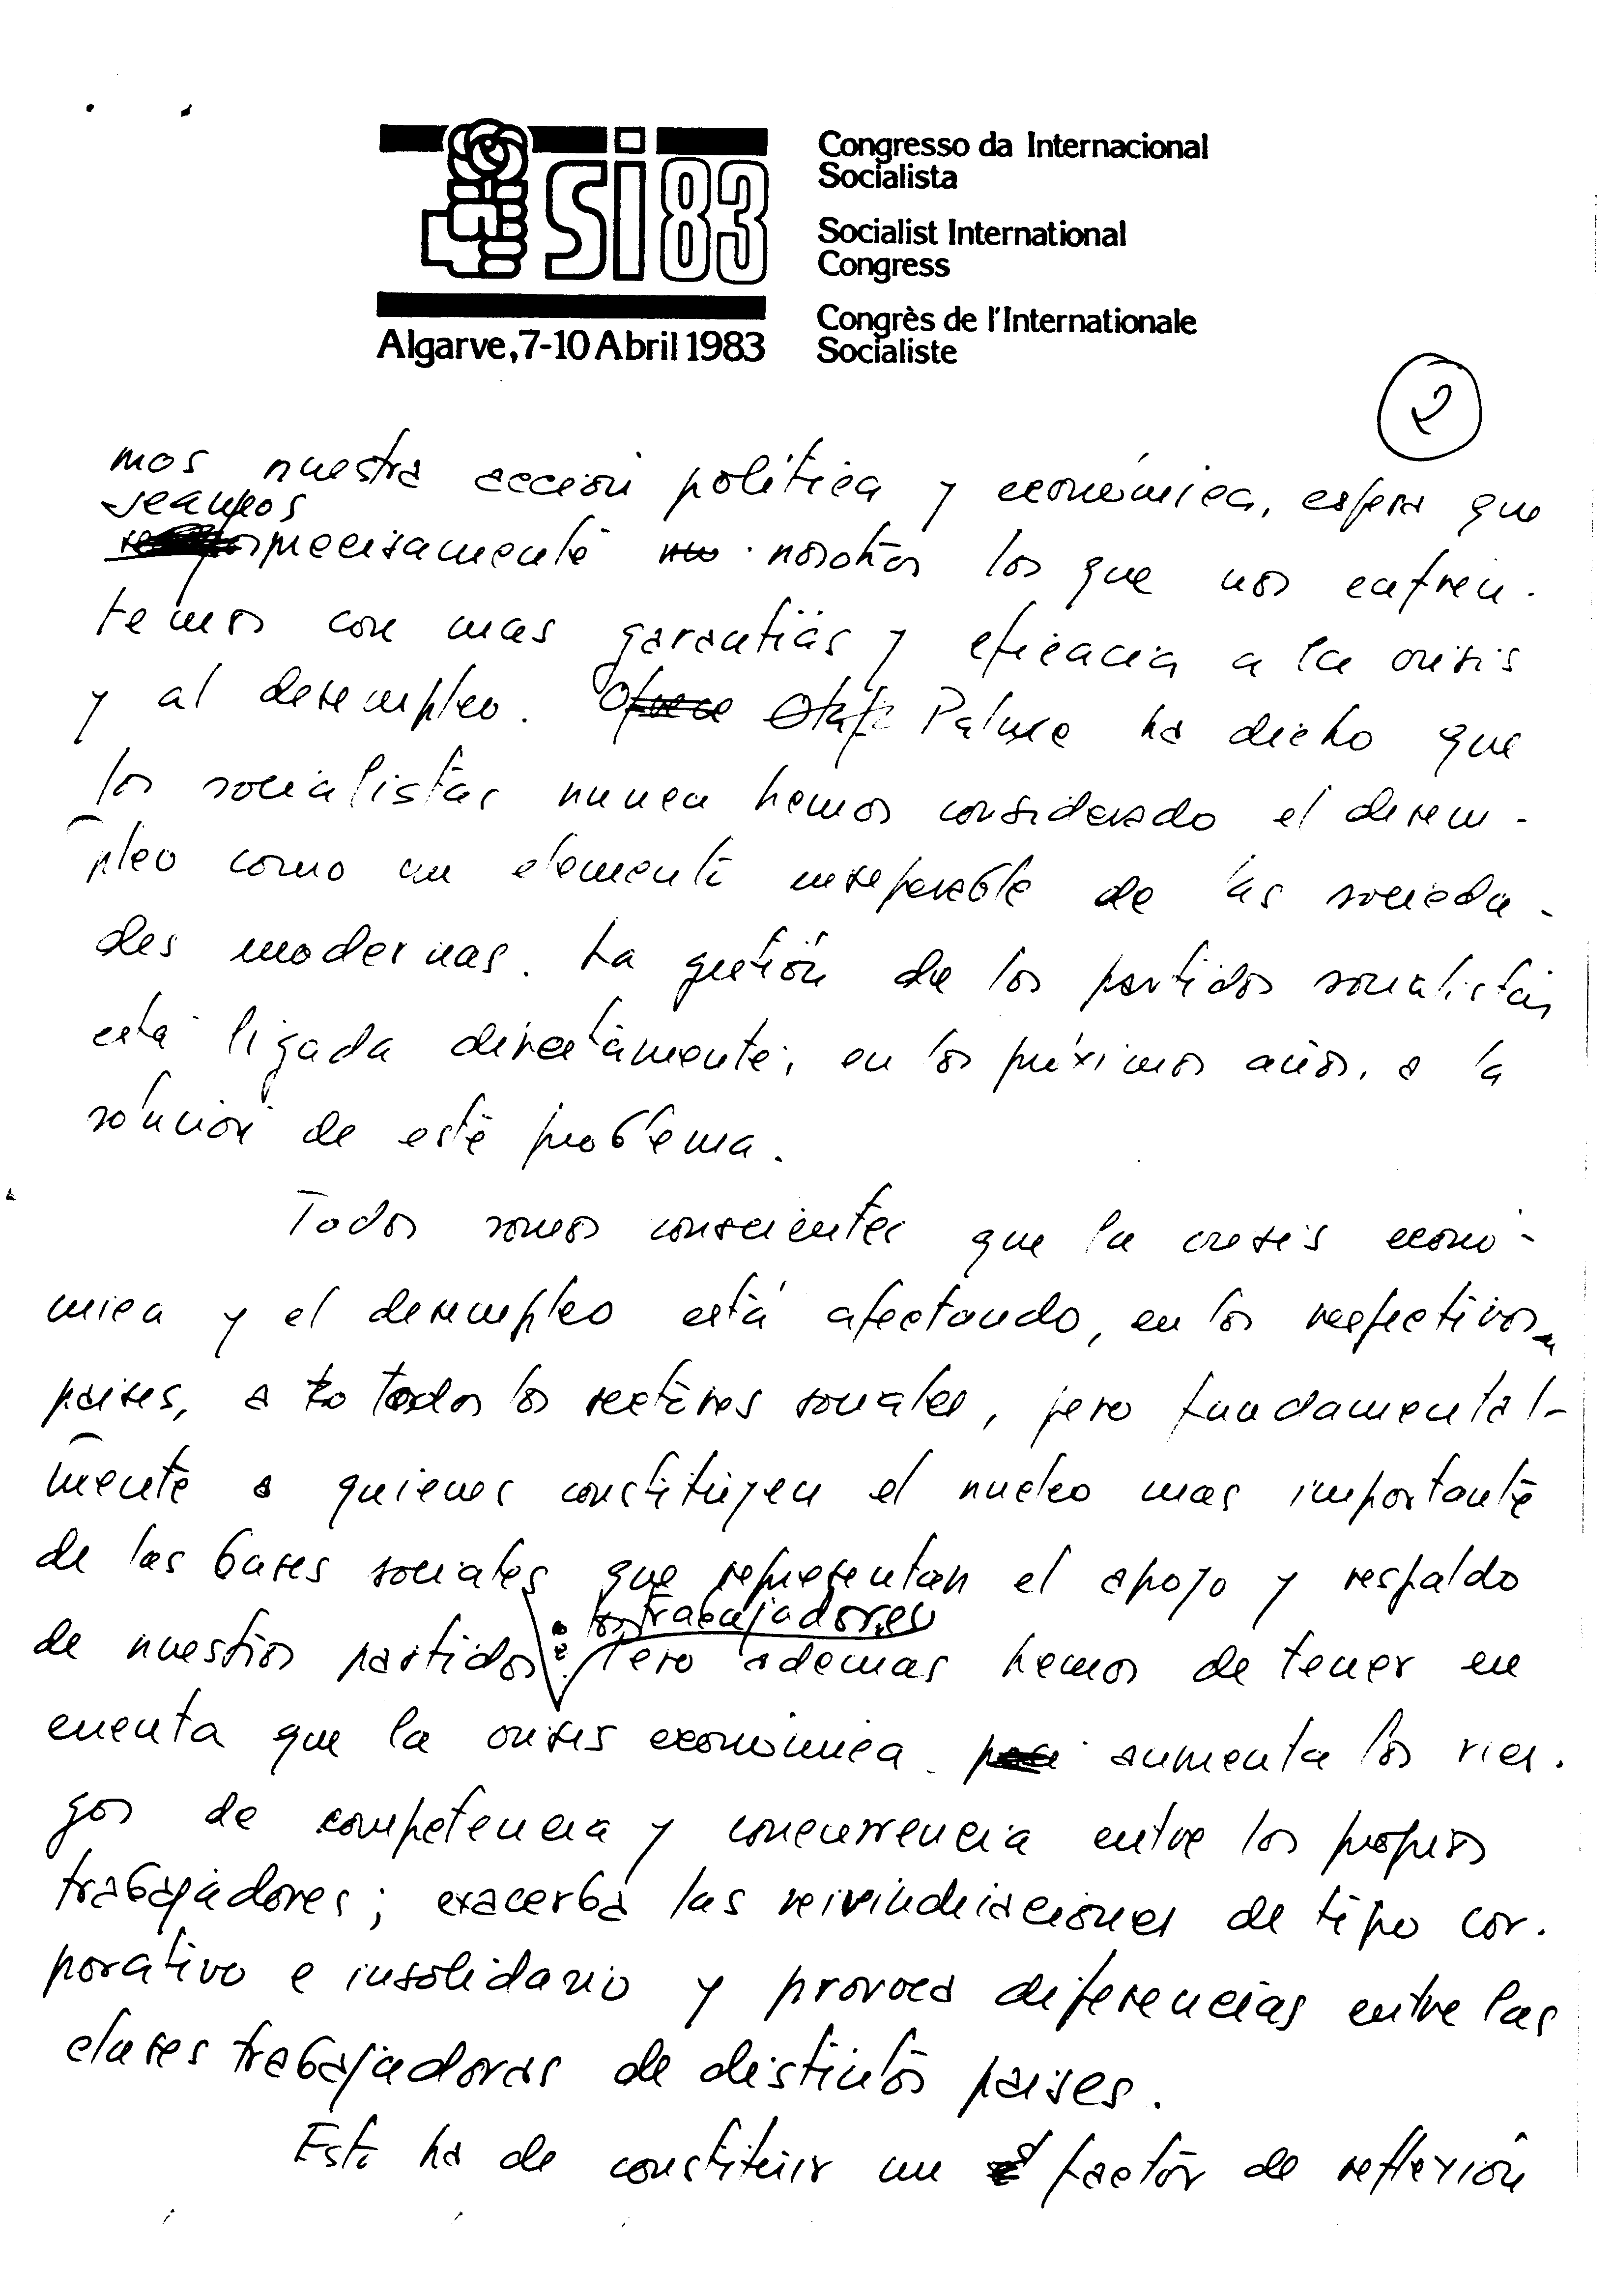 SI 83
Algarve, 7-10 Abril 1983
Congresso da Internacional
Socialista
Socialist International
Congress
Congrès de l'Internationale
Socialiste
2
mos nuestra acción política y económica, espero que
seamos
precisamente nosotros los que nos enfren-
temos con mas garantías y eficacia a la crisis
y al desempleo. Ofrece Olof Palme ha dicho que
los socialistas nunca hemos considerado el desem-
pleo como un elemento inseparable de las socieda-
des modernas. La gestión de los partidos socialistas
está ligada directamente, en los próximos años, a la
solución de este problema.
Todos somos conscientes que la crisis econó-
mica y el desempleo está afectando, en los respectivos
paises, a to todos los sectores sociales, pero fundamental-
mente a quienes constituyen el nucleo mas importante
de las bases sociales que representan el apoyo y respaldo
los trabajadores
de nuestros partidos: Pero ademas hemos de tener en
cuenta que la crisis económica aumenta los ries-
gos de competencia y concurrencia entre los propios
trabajadores; exacerba las reivindicaciones de tipo cor-
porativo e insolidario y provoca diferencias entre las
clases trabajadoras de distintos paises.
Esto ha de constituir un factor de reflexión